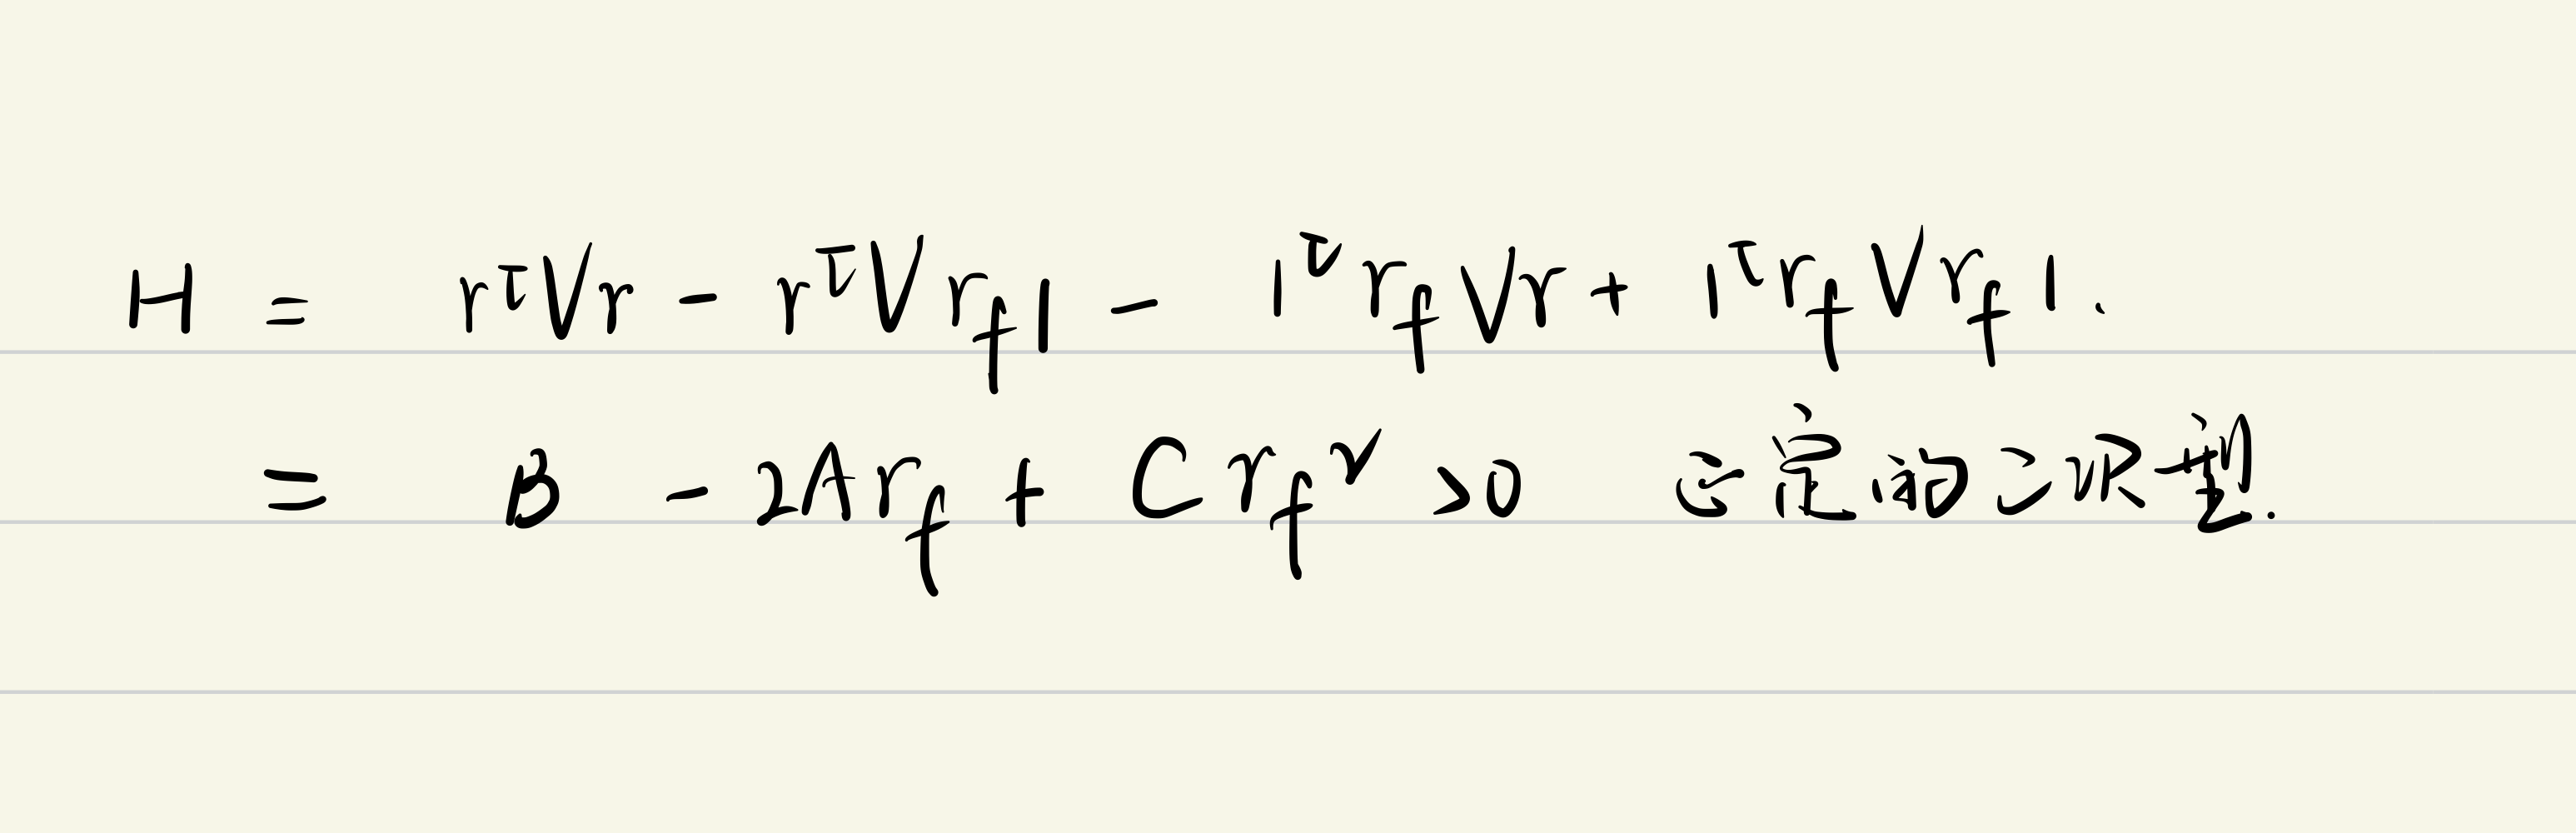 H = rᵀVr - rᵀVr_f1 - 1ᵀr_fVr + 1ᵀr_fVr_f1.
= B - 2Ar_f + Cr_f² >0 正定的二次型.